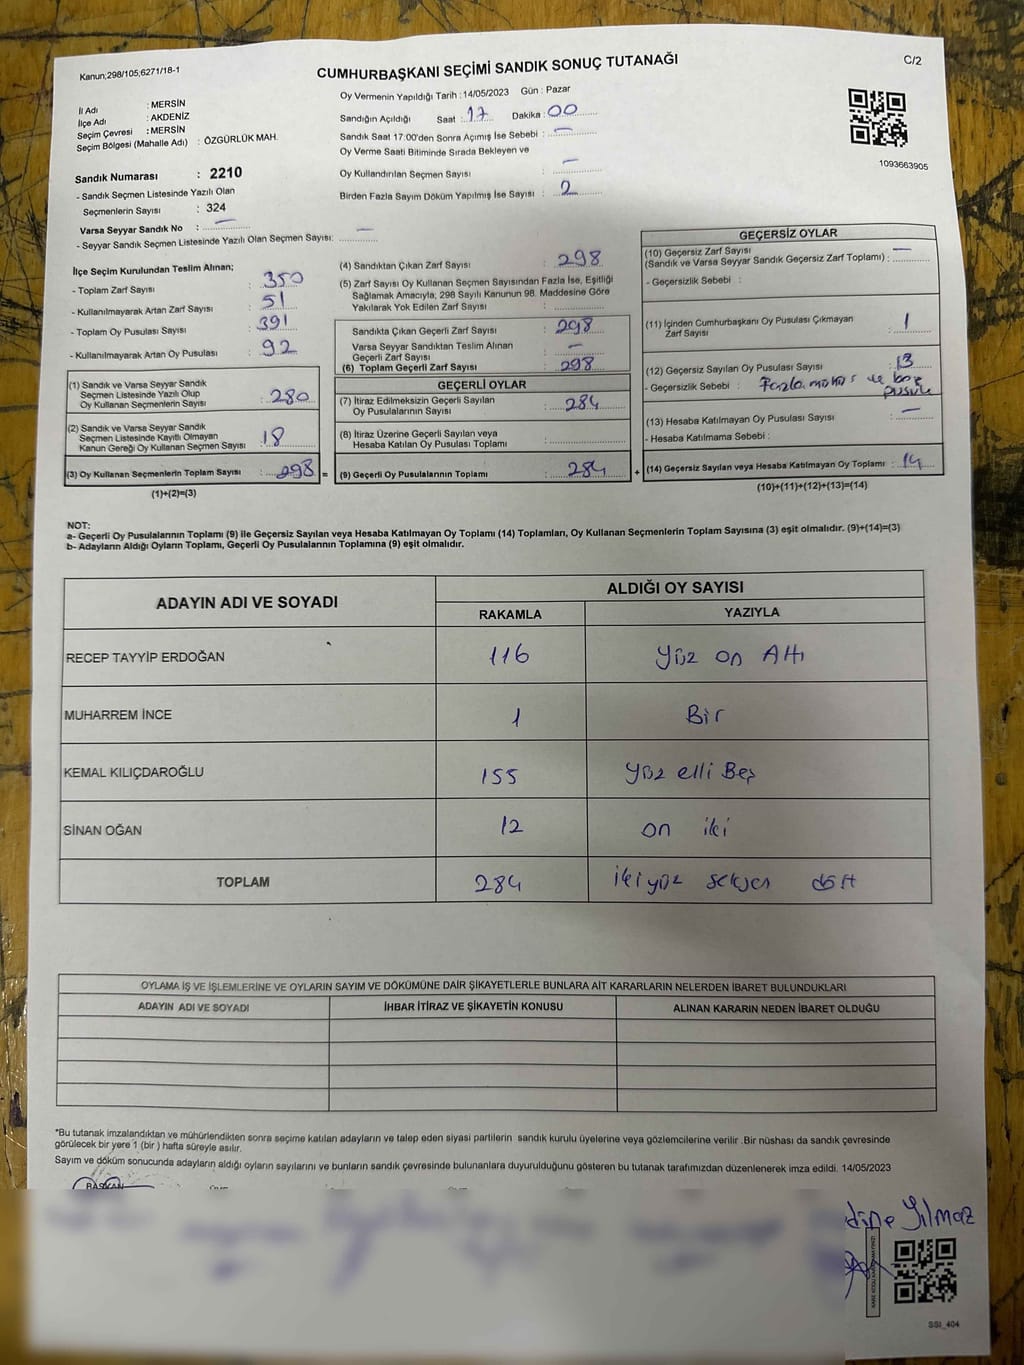 Kanun;298/105;6271/18-1
CUMHURBAŞKANI SEÇİMİ SANDIK SONUÇ TUTANAĞI
C/2
İl Adı : MERSİN
İlçe Adı : AKDENİZ
Seçim Çevresi : MERSİN
Seçim Bölgesi (Mahalle Adı) : ÖZGÜRLÜK MAH.
Oy Vermenin Yapıldığı Tarih : 14/05/2023 Gün : Pazar
Sandığın Açıldığı Saat : 17 Dakika : 00
Sandık Saat 17:00'den Sonra Açımış İse Sebebi : —
Oy Verme Saati Bitiminde Sırada Bekleyen ve
Oy Kullandırılan Seçmen Sayısı : —
Birden Fazla Sayım Döküm Yapılmış İse Sayısı : 2
1093663905
Sandık Numarası : 2210
- Sandık Seçmen Listesinde Yazılı Olan
Seçmenlerin Sayısı : 324
Varsa Seyyar Sandık No : —
- Seyyar Sandık Seçmen Listesinde Yazılı Olan Seçmen Sayısı: —
İlçe Seçim Kurulundan Teslim Alınan;
- Toplam Zarf Sayısı : 350
- Kullanılmayarak Artan Zarf Sayısı : 51
- Toplam Oy Pusulası Sayısı : 391
- Kullanılmayarak Artan Oy Pusulası : 92
(1) Sandık ve Varsa Seyyar Sandık
Seçmen Listesinde Yazılı Olup
Oy Kullanan Seçmenlerin Sayısı : 280
(2) Sandık ve Varsa Seyyar Sandık
Seçmen Listesinde Kayıtlı Olmayan
Kanun Gereği Oy Kullanan Seçmen Sayısı : 18
(3) Oy Kullanan Seçmenlerin Toplam Sayısı : 298 =
(1)+(2)=(3)
(4) Sandıktan Çıkan Zarf Sayısı : 298
(5) Zarf Sayısı Oy Kullanan Seçmen Sayısından Fazla İse, Eşitliği
Sağlamak Amacıyla, 298 Sayılı Kanunun 98. Maddesine Göre
Yakılarak Yok Edilen Zarf Sayısı :
Sandıkta Çıkan Geçerli Zarf Sayısı : 298
Varsa Seyyar Sandıktan Teslim Alınan
Geçerli Zarf Sayısı : —
(6) Toplam Geçerli Zarf Sayısı : 298
GEÇERLİ OYLAR
(7) İtiraz Edilmeksizin Geçerli Sayılan
Oy Pusulalarının Sayısı : 284
(8) İtiraz Üzerine Geçerli Sayılan veya
Hesaba Katılan Oy Pusulası Toplamı :
(9) Geçerli Oy Pusulalarının Toplamı : 284 +
GEÇERSİZ OYLAR
(10) Geçersiz Zarf Sayısı
(Sandık ve Varsa Seyyar Sandık Geçersiz Zarf Toplamı) : —
- Geçersizlik Sebebi :
(11) İçinden Cumhurbaşkanı Oy Pusulası Çıkmayan
Zarf Sayısı : 1
(12) Geçersiz Sayılan Oy Pusulası Sayısı : 13
- Geçersizlik Sebebi : Fazla mühür ve boş
pusula
(13) Hesaba Katılmayan Oy Pusulası Sayısı : —
- Hesaba Katılmama Sebebi :
(14) Geçersiz Sayılan veya Hesaba Katılmayan Oy Toplamı : 14
(10)+(11)+(12)+(13)=(14)
NOT:
a- Geçerli Oy Pusulalarının Toplamı (9) ile Geçersiz Sayılan veya Hesaba Katılmayan Oy Toplamı (14) Toplamları, Oy Kullanan Seçmenlerin Toplam Sayısına (3) eşit olmalıdır. (9)+(14)=(3)
b- Adayların Aldığı Oyların Toplamı, Geçerli Oy Pusulalarının Toplamına (9) eşit olmalıdır.
ADAYIN ADI VE SOYADI
ALDIĞI OY SAYISI
RAKAMLA YAZIYLA
RECEP TAYYİP ERDOĞAN 116 Yüz on Altı
MUHARREM İNCE 1 Bir
KEMAL KILIÇDAROĞLU 155 Yüz elli Beş
SİNAN OĞAN 12 on iki
TOPLAM 284 ikiyüz seksen dört
OYLAMA İŞ VE İŞLEMLERİNE VE OYLARIN SAYIM VE DÖKÜMÜNE DAİR ŞİKAYETLERLE BUNLARA AİT KARARLARIN NELERDEN İBARET BULUNDUKLARI
ADAYIN ADI VE SOYADI İHBAR İTİRAZ VE ŞİKAYETİN KONUSU ALINAN KARARIN NEDEN İBARET OLDUĞU
*Bu tutanak imzalandıktan ve mühürlendikten sonra seçime katılan adayların ve talep eden siyasi partilerin sandık kurulu üyelerine veya gözlemcilerine verilir .Bir nüshası da sandık çevresinde
görülecek bir yere 1 (bir ) hafta süreyle asılır.
Sayım ve döküm sonucunda adayların aldığı oyların sayılarını ve bunların sandık çevresinde bulunanlara duyurulduğunu gösteren bu tutanak tarafımızdan düzenlenerek imza edildi. 14/05/2023
BAŞKAN
Yılmaz
SSİ_404